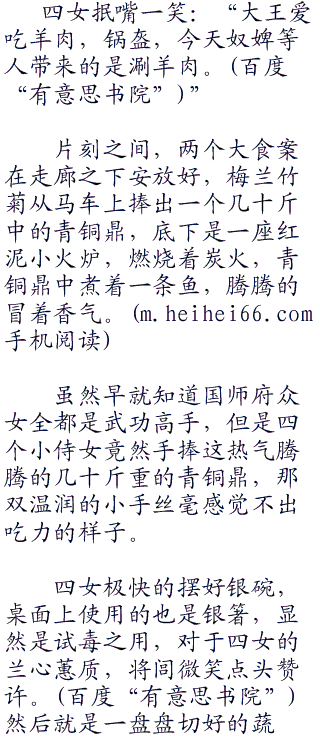 四女抿嘴一笑：“大王爱
吃羊肉，锅盔，今天奴婢等
人带来的是涮羊肉。(百度
“有意思书院”)”
片刻之间，两个大食案
在走廊之下安放好，梅兰竹
菊从马车上捧出一个几十斤
中的青铜鼎，底下是一座红
泥小火炉，燃烧着炭火，青
铜鼎中煮着一条鱼，腾腾的
冒着香气。(m.heihei66.com
手机阅读)
虽然早就知道国师府众
女全都是武功高手，但是四
个小侍女竟然手捧这热气腾
腾的几十斤重的青铜鼎，那
双温润的小手丝毫感觉不出
吃力的样子。
四女极快的摆好银碗，
桌面上使用的也是银箸，显
然是试毒之用，对于四女的
兰心蕙质，将闾微笑点头赞
许。(百度“有意思书院”)
然后就是一盘盘切好的蔬